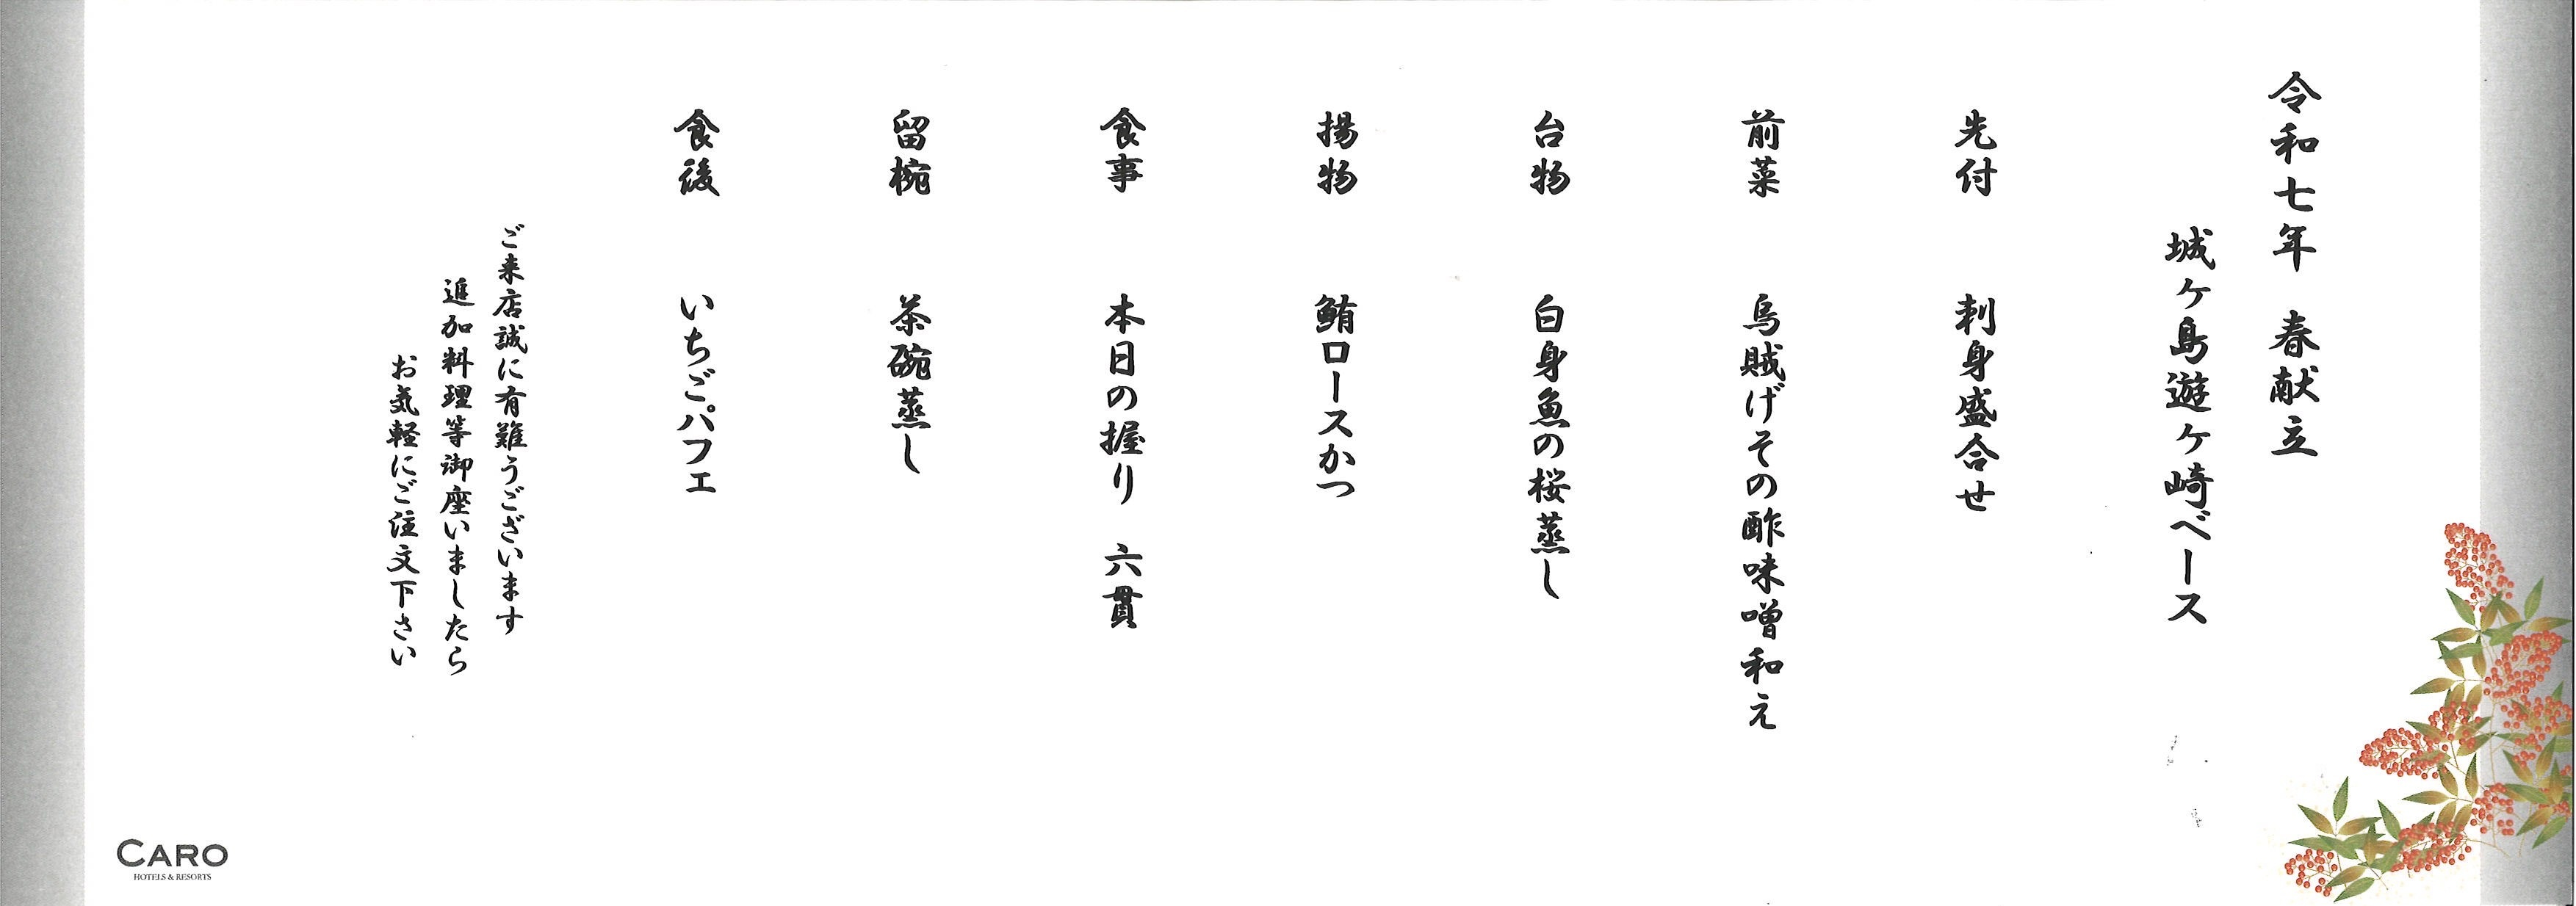 令和七年　春献立
城ヶ島遊ヶ崎ベース
先付　刺身盛合せ
前菜　烏賊げその酢味噌和え
台物　白身魚の桜蒸し
揚物　鮪ロースかつ
食事　本日の握り　六貫
留椀　茶碗蒸し
食後　いちごパフェ
ご来店誠に有難うございます
追加料理等御座いましたら
お気軽にご注文下さい
CARO
HOTELS & RESORTS